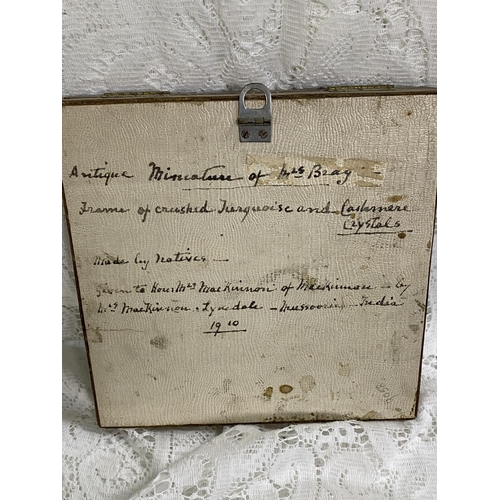 Antique Miniature of Mrs Bray
Frame of crushed Turquoise and Cashmere
Crystals
Made by Natives
given to Honr Mrs MacKinnon of MacKinnon - by
Mrs MacKinnon - Lyndale - Mussoorie - India
1910